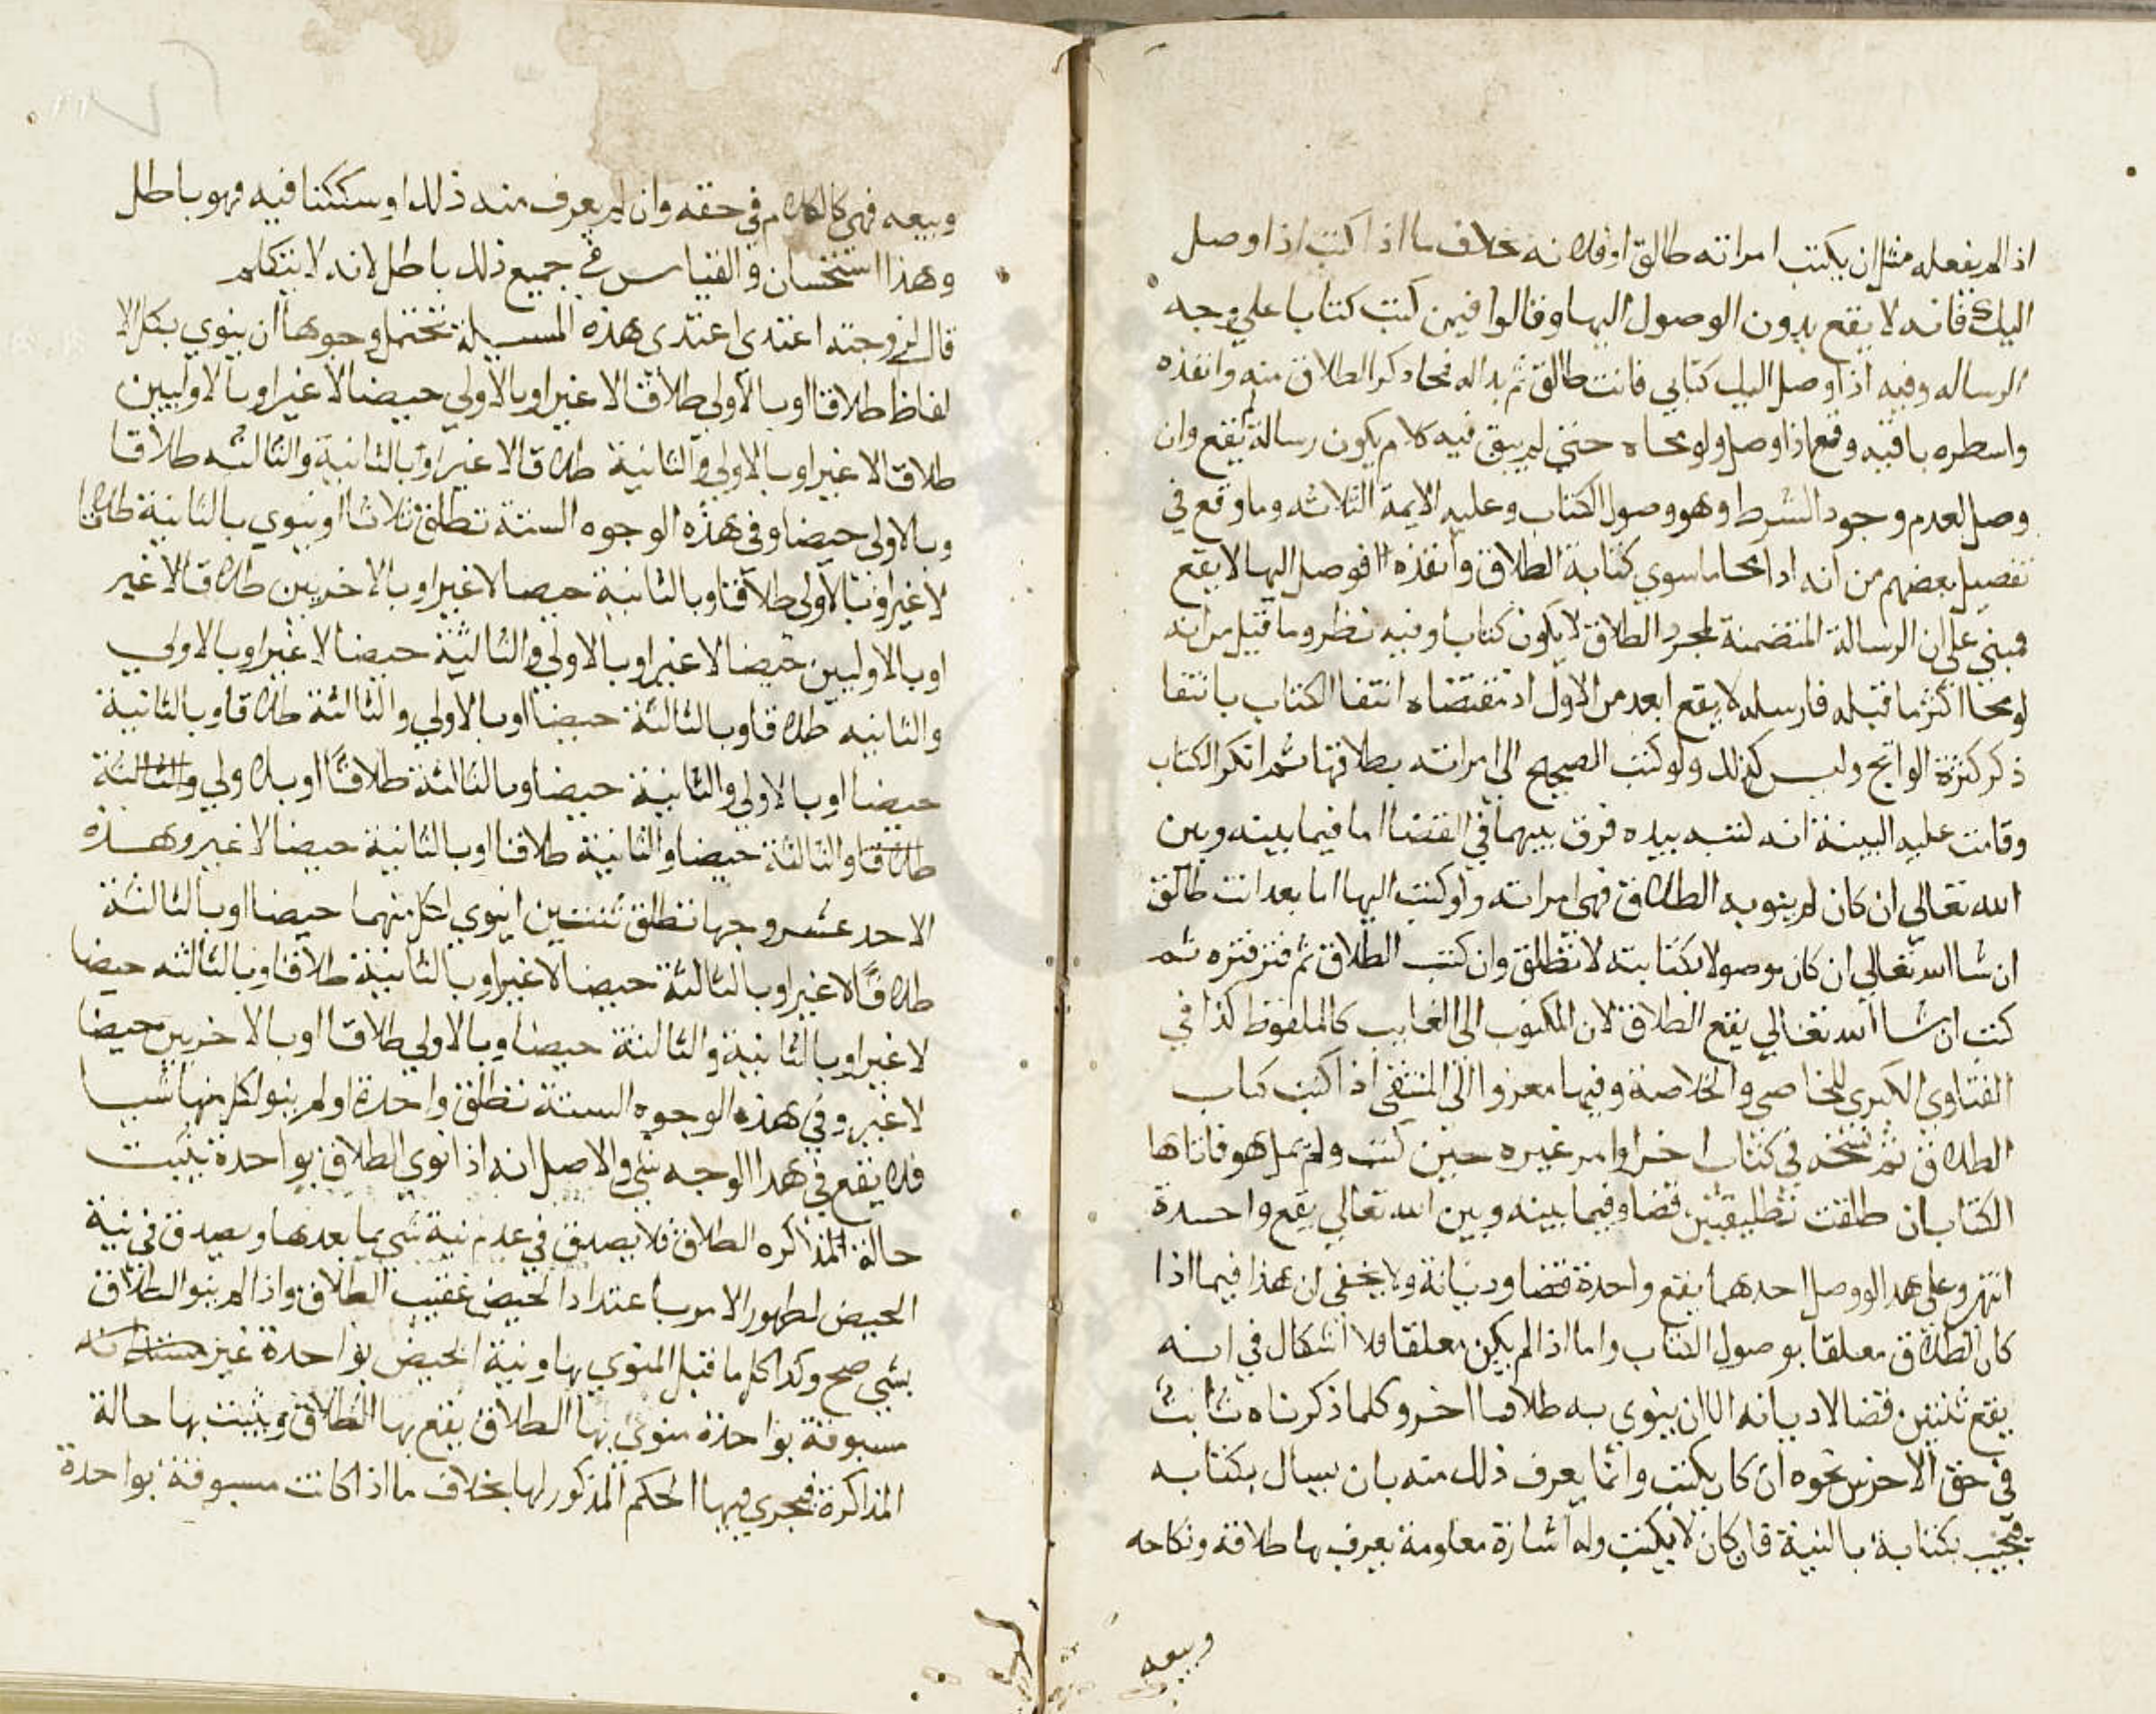 اذا لم يفعله مثل ان يكتب امراته طالق او فلانه بخلاف ما اذا كتب اذا وصل
اليك فانه لا يقع بدون الوصول اليها وقالوا فيمن كتب كتابا علي وجه
الرساله وفيه اذا وصل اليك كتابي فانت طالق ثم بدا له فمحا ذكر الطلاق منه وانفذه
واسطره باقيه وقع اذا وصل ولو محاه حتي لم يبق فيه كلام يكون رسالة لم يقع وان
وصل لعدم وجود الشرط وهو وصول الكتاب وعليه الايمة الثلاثه وما وقع في
تفصيل بعضهم من انه اذا محا ما سوي كتابة الطلاق وانفذه فوصل اليها لا يقع
مبني علي ان الرسالة المتضمنة لمجرد الطلاق لا يكون كتابا وفيه نظر وما قيل من انه
لو محا اكثر ما قبله فارسله لا يقع ابعد من الاول اذ مقتضاه انتفا الكتاب بانتفا
ذكر كثرة الحوائج وليس كذلك ولو كتب الصحيح الي امراته بطلاقها ثم انكر الكتاب
وقامت عليه البينة انه كتبه بيده فرق بينهما في القضا اما فيما بينه وبين
الله تعالي ان كان لم ينو به الطلاق فهي امراته ولو كتب اليها اما بعد انت طالق
ان شا الله تعالي ان كان موصولا بكتابته لا تطلق وان كتب الطلاق ثم فتر فتره ثم
كتب ان شا الله تعالي يقع الطلاق لان المكتوب الي الغايب كالملفوظ كذا في
الفتاوي الكبري للخاصي والخلاصة وفيها معزوا الي المنتقي اذا كتب كتاب
الطلاق ثم نسخه في كتاب اخر او امر غيره حين كتب ولم يمل هو فاتاها
الكتابان طلقت تطليقتين قضا وفيما بينه وبين الله تعالي يقع واحدة
انتهي وعلي هذا لو وصل احدهما يقع واحدة قضا وديانة ولا يخفي ان هذا فيما اذا
كان الطلاق معلقا بوصول الكتاب واما اذا لم يكن معلقا فلا اشكال في انه
يقع ثنتين قضا لا ديانه الا ان ينوي به طلاقا اخر وكلما ذكرناه ثابت
في حق الاخرس نحوه ان كان يكتب وانما يعرف ذلك منه بان يسال بكتابه
فيجيب بكتابة بالنية فان كان لا يكتب وله اشارة معلومة يعرف بها طلاقه ونكاحه
وبيعه
وبيعه فهي كالكلام في حقه وان لم يعرف منه ذلك او سككنا فيه فهو باطل
وهذا استحسان والقياس في جميع ذلك باطل لانه لا يتكلم
قال لزوجته اعتدي اعتدي هذه المسيلة تحتمل وجوها ان ينوي بكل الا
لفاظ طلاقا او بالاولي طلاقا لا غير او بالاولي حيضا لا غير او بالاوليين
طلاقا لا غير او بالاولي والثانية طلاقا لا غير او بالثانية والثالثه طلاقا
وبالاولي حيضا وفي هذه الوجوه الستة تطلق ثلاثا او ينوي بالثانية طلاقا
لا غير او بالاولي طلاقا وبالثانية حيضا لا غير او بالاخريين طلاقا لا غير
او بالاوليين حيضا لا غير او بالاولي والثالثة حيضا لا غير او بالاولي
والثانيه طلاقا وبالثالثة حيضا او بالاولي والثالثة طلاقا وبالثانية
حيضا او بالاولي والثانية حيضا وبالثالثة طلاقا او بالاولي والثالثة
طلاقا والثالثة حيضا والثانية طلاقا او بالثانية حيضا لا غير وهذه
الاحد عشر وجها تطلق ثنتين او ينوي بكل منهما حيضا او بالثالثة
طلاقا لا غير او بالثالثة حيضا لا غير او بالثانية طلاقا وبالثالثه حيضا
لا غير او بالثانية والثالثة حيضا وبالاولي طلاقا او بالاخريين حيضا
لا غير وفي هذه الوجوه الستة تطلق واحدة او لم ينو لكل منها شيا
فلا يقع في هذا الوجه شي والاصل انه اذا نوي الطلاق بواحدة يثبت
حالة المذاكره الطلاق فلا يصدق في عدم نية شي بما بعدها ويصدق في نية
الحيض لظهور الامر باعتداد الحيض عقيب الطلاق واذا لم ينو الطلاق
بشي صح وكذا كل ما قبل المنوي بها ونية الحيض بواحدة غير
مسبوقة بواحدة منوي بها الطلاق يقع بها الطلاق ويثبت بها حالة
المذاكرة فيجري فيها الحكم المذكور لها بخلاف ما اذا كانت مسبوقة بواحدة